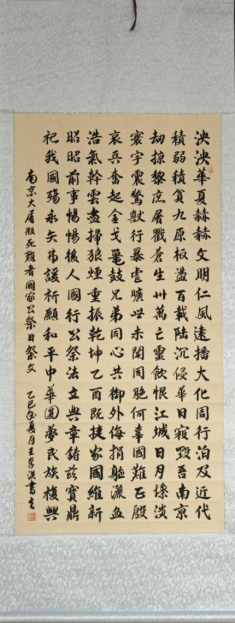 泱泱華夏赫赫文明仁風遠播大化周行洎及近代
積弱積貧九原板蕩百載陸沉侵華日寇毀吾南京
劫掠黎庶屠戮蒼生卅萬亡靈飲恨江城日月慘淡
寰宇震驚獸行暴虐曠世未聞同胞何辜國難正殷
哀兵奮起金戈鼉鼓兄弟同心共御外侮捐軀灑血
浩氣幹雲盡掃狼煙重振乾坤乙酉既捷家國維新
昭昭前事惕惕後人國行公祭法立典章鑄茲寶鼎
祀我國殤永矢弗諼祈願和平中華圓夢民族復興
南京大屠殺死難者國家公祭日祭文 乙巳年夏月王洪書之